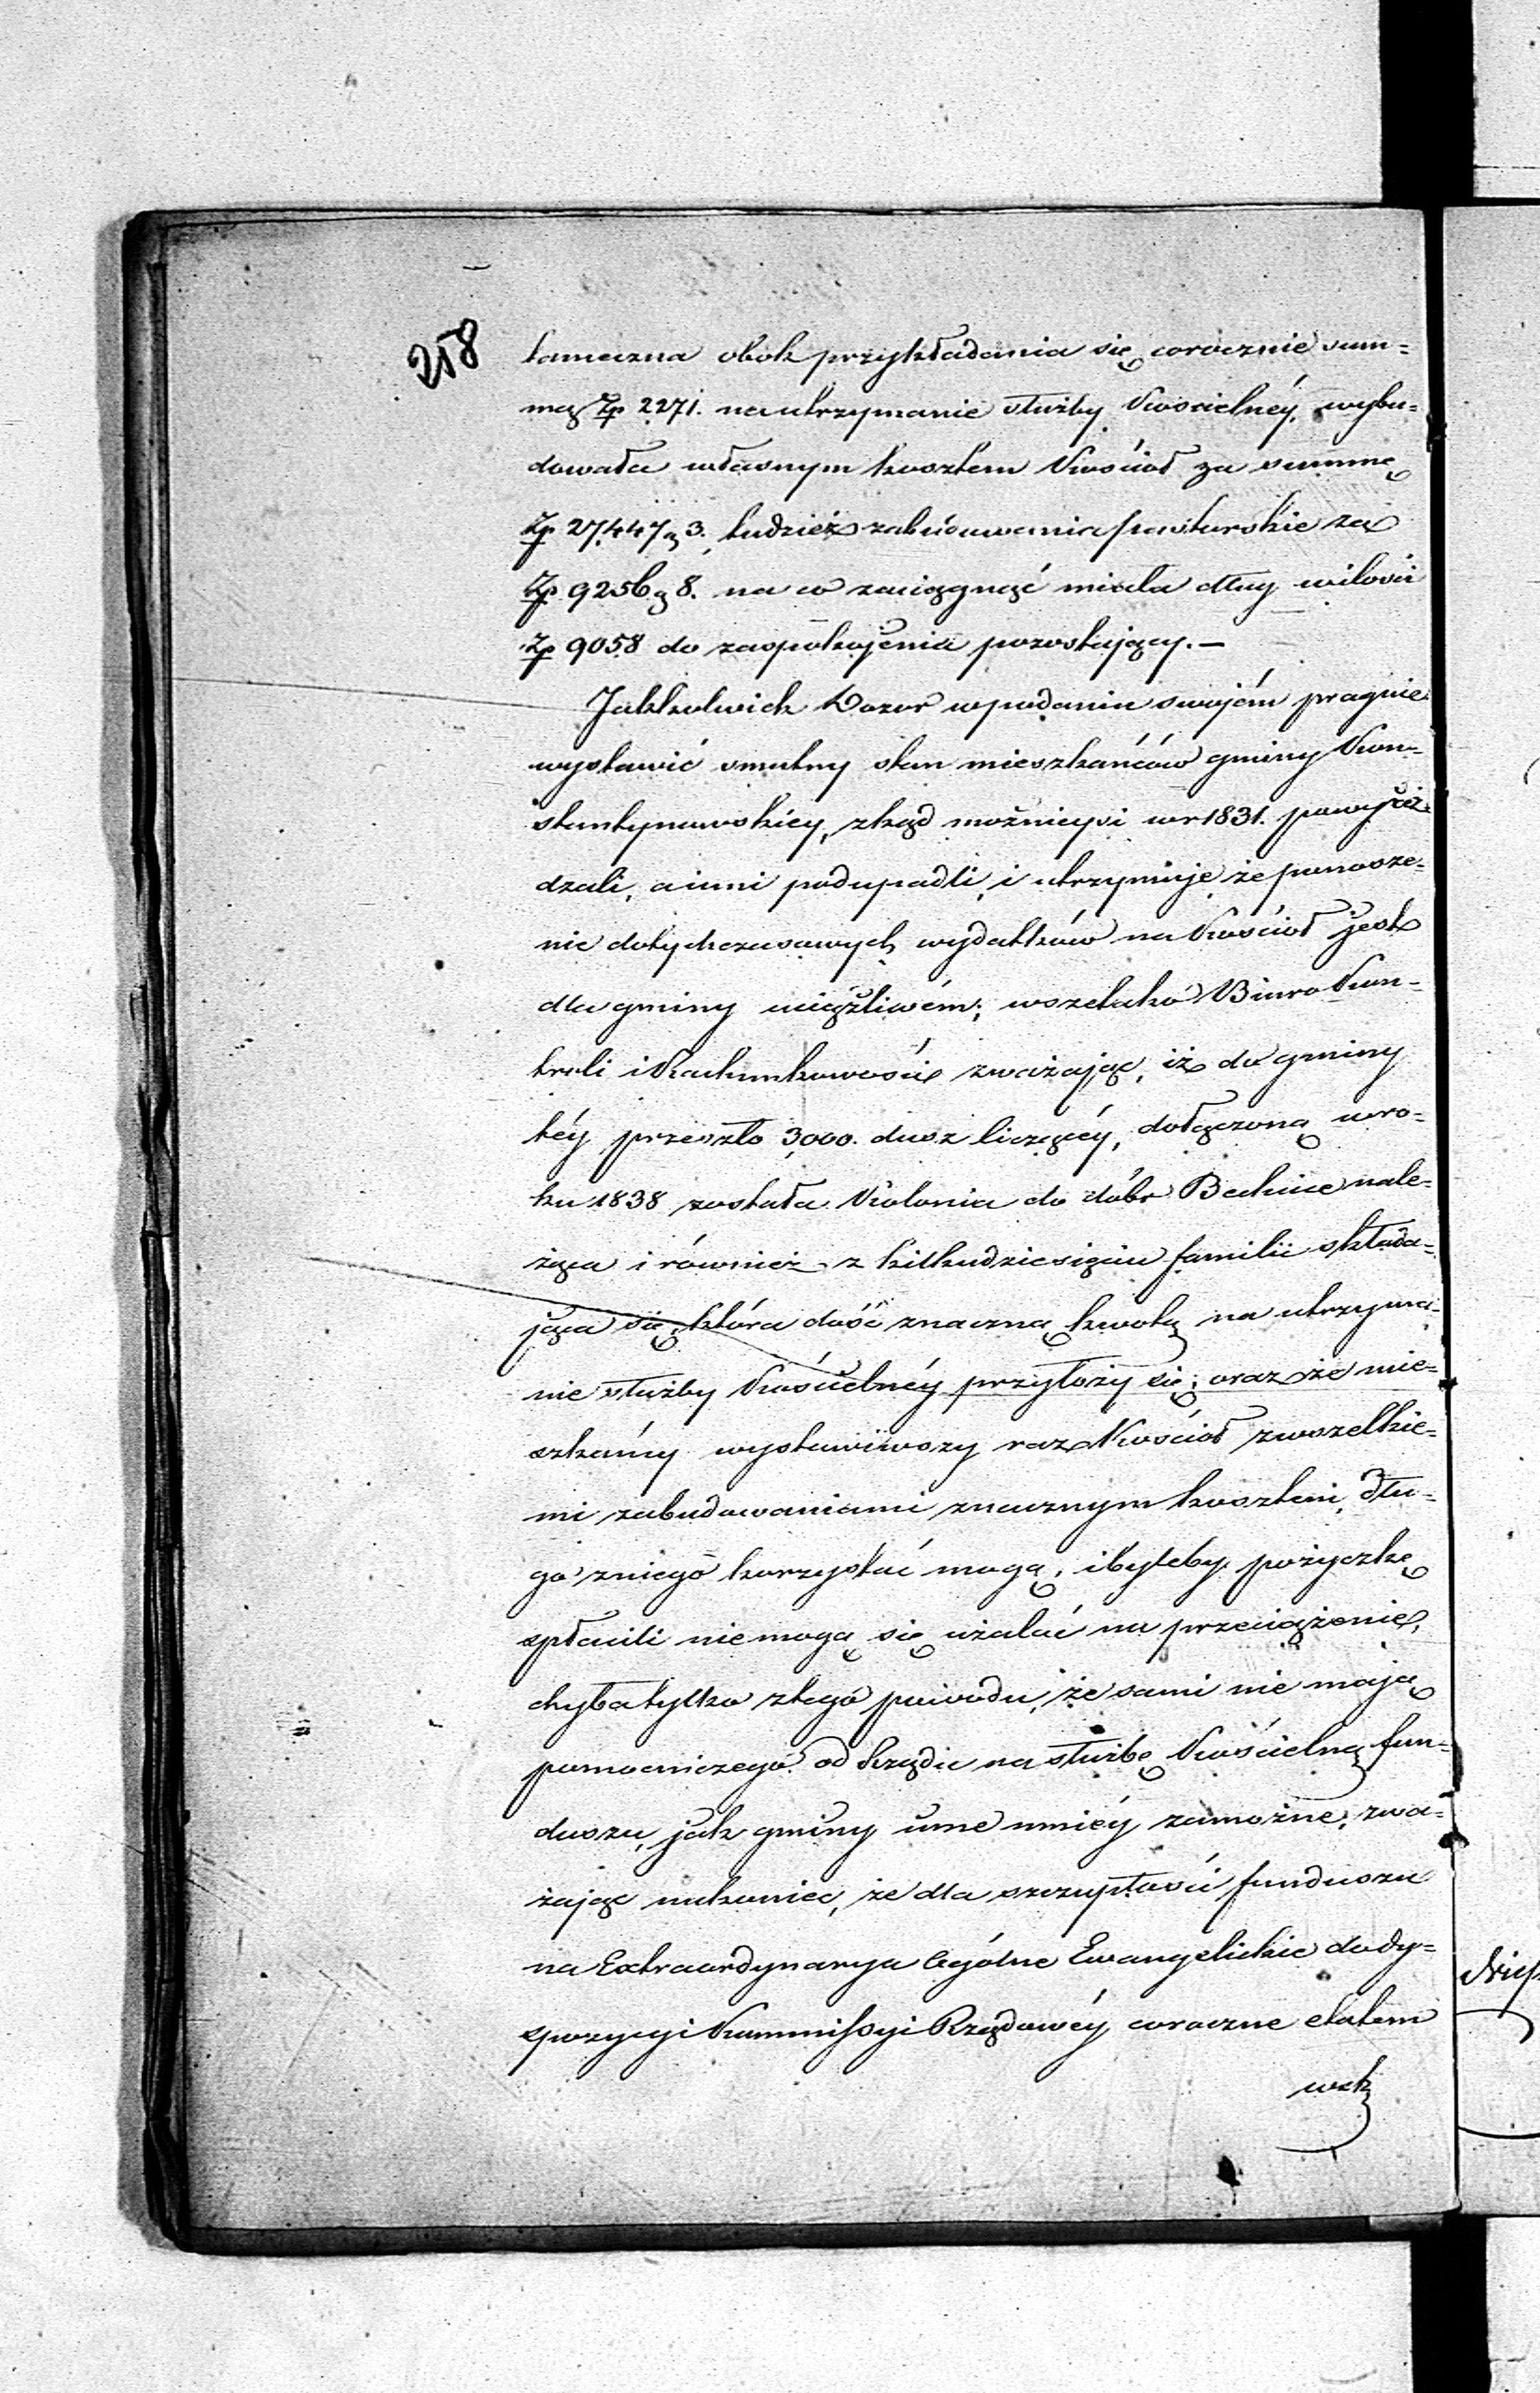 258
tameczna obok przykładania się corocznie sum=
mą Zp 2271. na utrzymanie służby Kościelnéy, wybu=
dowała własnym kosztem Kościoł za summę
Zp 27,447 g 3. tudzież zabudowania pastorskie za
Zp 9256 g 8. na co zaciągnąć miała dług wilości
Zp 9058 do zaspokojenia pozostający. —
Jakkolwiek Dozor wpodaniu swojém pragnie
wystawić smutny stan mieszkańców gminy Kon=
stantynowskiey, zkąd możnieysi wr 1831. powyież=
dzali, a inni podupadli, i utrzymuje że ponosze=
nie dotychczasowych wydatków na Kościoł jest
dla gminy uciążliwém; wszelako Biuro Kon=
troli i Rachunkowości zważając, iż do gminy
téy przeszło 3,000. dusz liczącéy, dołączoną wro=
ku 1838 została Kolonia do dóbr Bechcice nale=
żąca i również z kilkudziesięciu familii składa=
jąca się, która dość znaczną kwotą na utrzyma=
nie służby Kościelnéy przyłoży się; oraz że mie=
szkańcy wystawiwszy raz Kościoł zwszelkie=
mi zabudowaniami znacznym kosztem, dłu=
go zniego korzystać mogą, i byleby pożyczkę
spłacili niemogą się użalać na przeciążenie,
chyba tylko ztego powodu, że sami nie mają
pomocniczego od Rządu na służbę Kościelną fun=
duszu, jak gminy inne mniéy zamożne, zwa=
żając nakoniec, że dla szczupłości funduszu
na Extraordynarya Ogólne Ewangelickie do dy=
spozycyi Kommissyi Rządowéy coroczne etatem